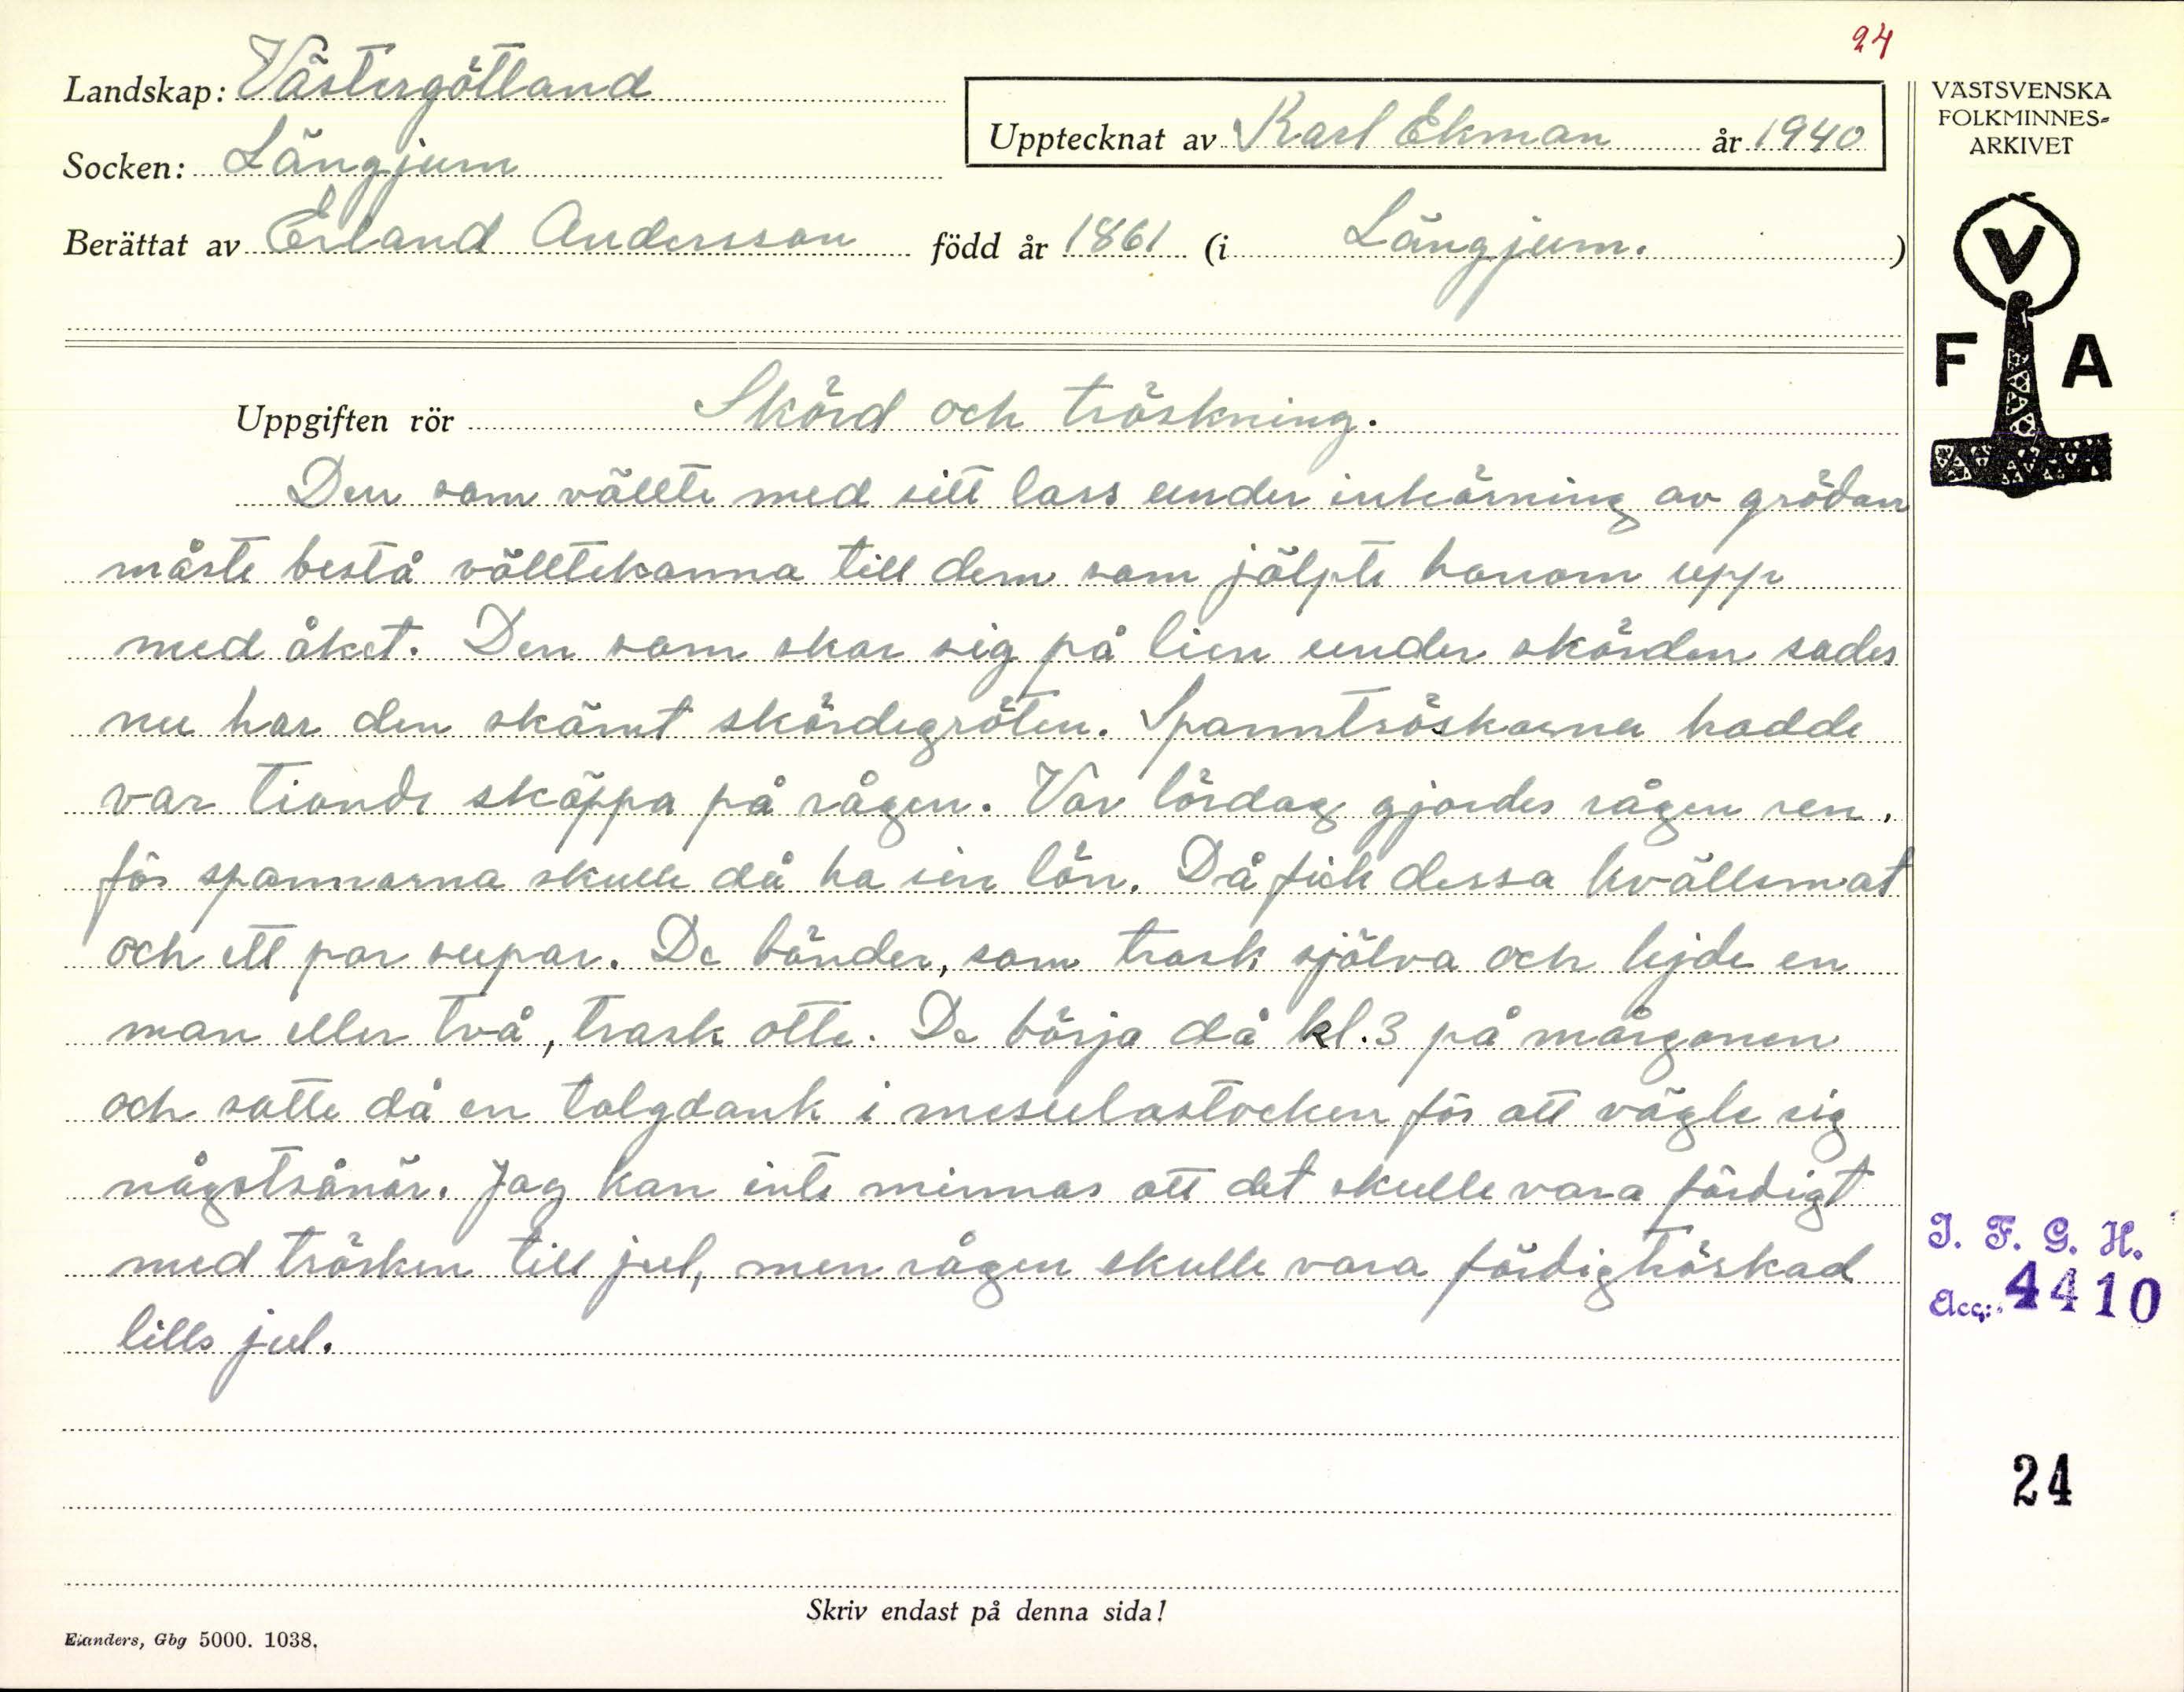 24
Landskap: Västergötland
Socken: Längjum
Upptecknat av Karl Ekman år 1940
Berättat av Erland Andersson född år 1861 (i Längjum.)
VÄSTSVENSKA
FOLKMINNES-
ARKIVET
V
F A
Uppgiften rör Skörd och tröskning.
Den som vällte med sitt lass under inkörning av grödan
måste bestå välltekanna till dem som jälpte honom upp
med åket. Den som skar sig på lien under skörden sades
nu har den skämt skördegröten. Spanntröskarna hadde
var tionde skäppa på rågen. Var lördag gjordes rågen ren,
för spannarna skulle då ha sin lön. Då fick dessa kvällsmat
och ett par supar. De bönder, som trask själva och lejde en
man eller två, trask otte. De börja då kl. 3 på morgonen
och satte då en talgdank i mesulastocken för att vägle sig
någotsånär. Jag kan inte minnas att det skulle vara färdigt
med trösken till jul, men rågen skulle vara färdigtröskad
tills jul.
I. F. G. H.
Acc: 4410
24
Skriv endast på denna sida!
Elanders, Gbg 5000. 1038.